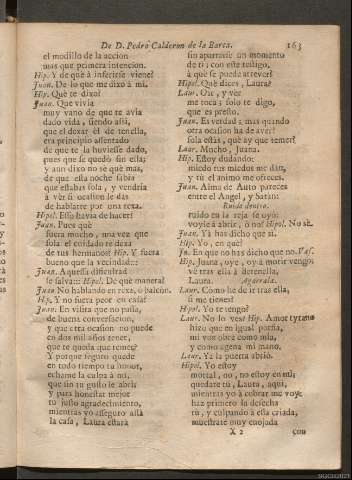 De D. Pedro Calderon de la Barca. 163
el modillo de la accion
mas que primera intencion.
Hip. Y de què à inferirse viene?
Juan. De lo que me dixo à mi.
Hip. Què te dixo?
Juan. Que vivia
muy vano de que te avia
dado vida, siendo assi,
que el dexar èl de tenella,
era principio assentado
de que te la huviesse dado,
pues que se quedò sin ella;
y aun dixo no sè què mas,
de que esta noche sabrà
que estabas sola, y vendria
à ver si ocasion le dàs
de hablarte por una rexa.
Hipol. Esso havia de hacer?
Juan. Pues què
fuera mucho, una vez que
sola el cuidado te dexa
de tus hermanos? Hip. Y fuera
bueno que la vecindad::
Juan. Aquessa dificultad
se salva:: Hipol. De què manera?
Juan. No hablando en rexa, o balcon.
Hip. Y no fuera peor en casa?
Juan. En visita que no passa,
de buena conversacion,
y que otra ocasion no puede
en dos mil años tener,
que te queda que temer?
Y porque seguro quede
en todo tiempo tu honor,
echame la culpa à mi,
que sin tu gusto le abrì
y para honestar mejor
tu justo agradecimiento,
mientras yo asseguro assi
la casa, Laura estarà
sin apartarse un momento
de tì: con este testigo,
à què se puede atrever?
Hipol. Què dices, Laura?
Laur. Oìr, y ver
me toca; solo te digo,
que es presto.
Juan. Es verdad; mas quando
otra ocasion ha de aver?
sola estàs, què ay que temer?
Laur. Mucho, Juana.
Hip. Estoy dudando:
miedo tus miedos me dàn,
y tù el animo me ofreces.
Juan. Alma de Auto pareces
entre el Angel, y Satàn:
Ruido dentro.
ruido en la reja se oyò:
voyle à abrir, ò no? Hipol. No sè.
Juan. Yà has dicho que sì.
Hip. Yo, en què?
Jn. En que no has dicho que no. Vas.
Hip. Juana, oye, oy à morir vengo:
vè tras ella à detenella,
Laura. Agarrala.
Laur. Como he de ir tras ella,
si me tienes?
Hipol. Yo te tengo?
Laur. No lo ves? Hip. Amor tyrano
hizo que en igual porfia,
mi voz obre como mia,
y como agena mi mano.
Laur. Yà la puerta abriò.
Hipol. Yo estoy
mortal, no, no estoy en mì;
quedate tù, Laura, aqui,
mientras yo à cobrar me voy:
haz primero la desecha
tù, y culpando à essa criada,
muestrate muy enojada
X 2 con